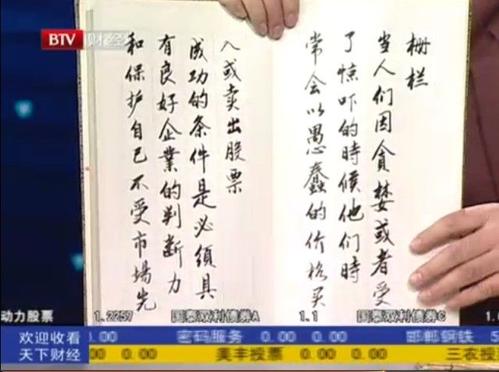 BTV 财经
栅栏
当人们因貪婪或者受
了惊吓的時候他们時
常会以愚蠢的价格买
入或卖出股票
成功的条件是必須具
有良好企業的判断力
和保护自己不受市場先
动力股票 1.2257 国泰双利债券A 1.1 国泰双利债券C
欢迎收看 0.00 密码服务 0.00 0.00 邯郸钢铁 5
天下财经 0.00 美丰投票 0.00 三农投票